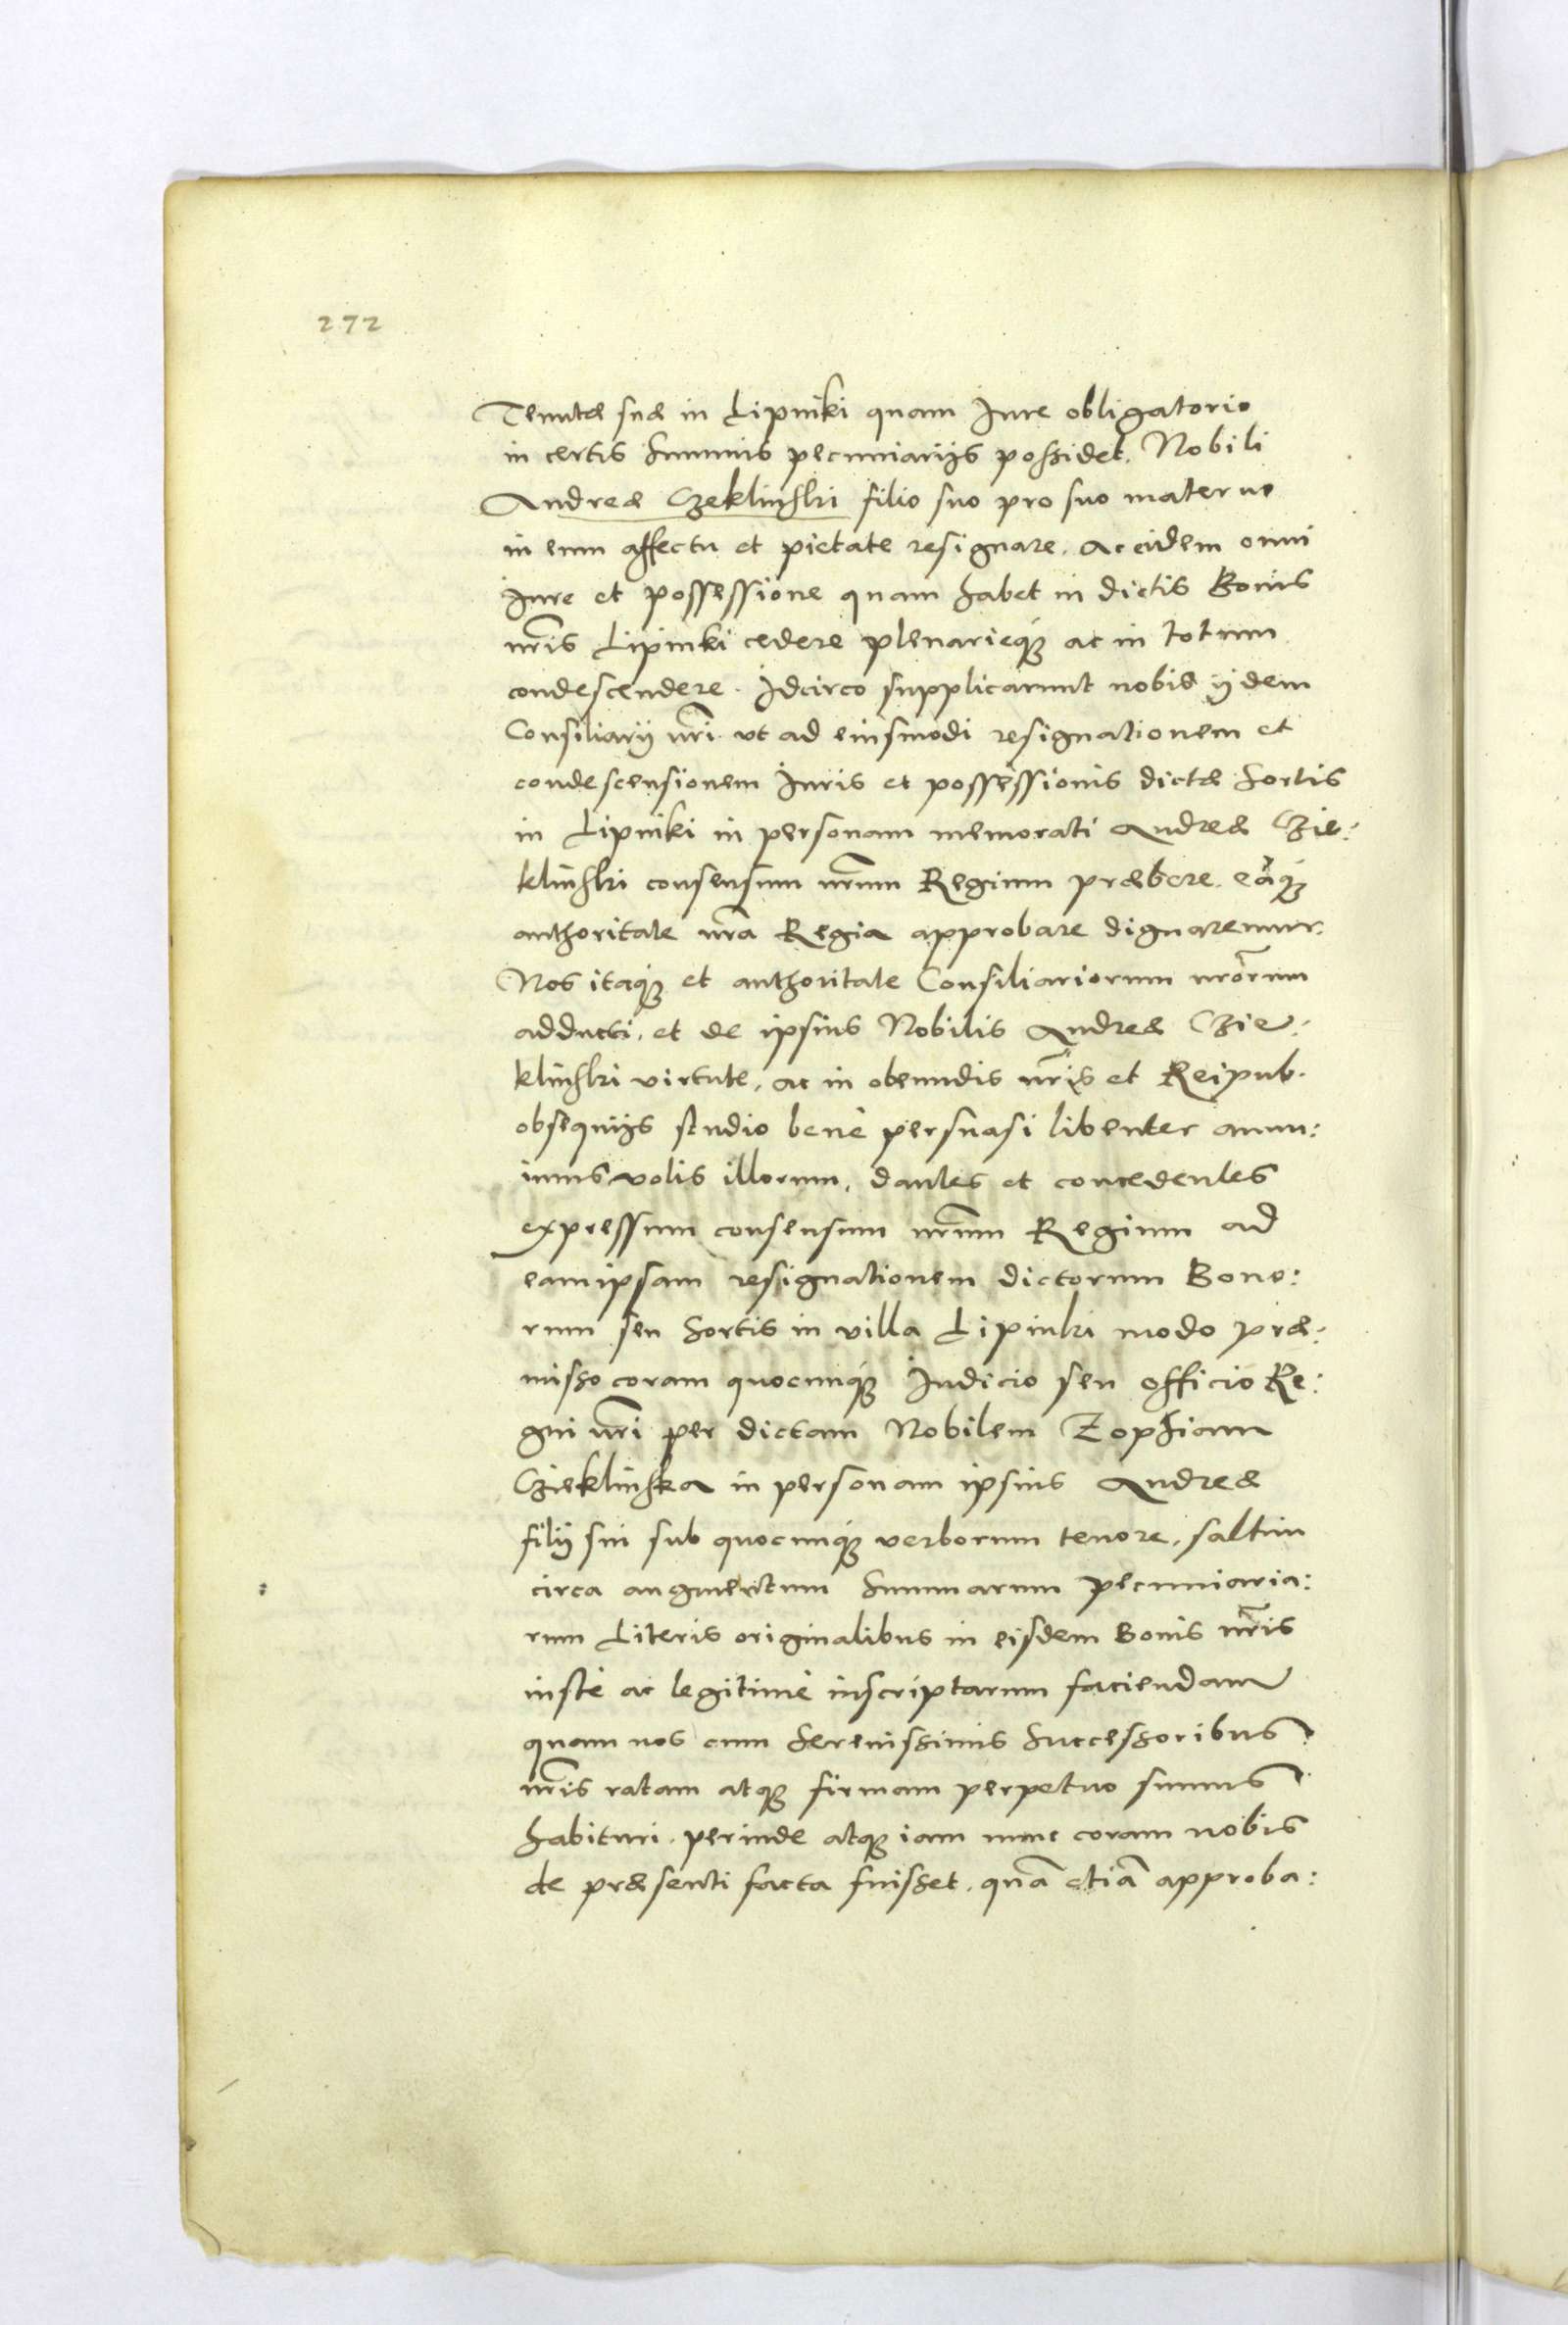 272
Tenutæ suæ in Lipniki quam Iure obligatorio
in certis Summis pecuniarijs possidet. Nobili
Andreæ Czeklinski filio suo pro suo materno
in eum affectu et pietate resignare. Ac eidem omni
Iure et possessione quam habet in dictis Bonis
nr̃is Lipinki cedere plenarieq; ac in totum
condescendere. Idcirco supplicarunt nobis ijdem
Consiliarij nr̃i. vt ad eiusmodi resignationem et
condescensionem Iuris et possessionis dictæ Sortis
in Lipniki in personam memorati Andreæ Czie:
klinski consensum nr̃um Regium præbere. eāq;
authoritate nr̃a Regia approbare dignaremur.
Nos itaq; et authoritate Consiliariorum nr̃orum
adducti. et de ipsius Nobilis Andreæ Czie:
klinski virtute, ac in obeundis nr̃is et Reipub.
obsequijs studio benè persuasi libenter annu:
imus votis illorum, dantes et concedentes
expressum consensum nr̃um Regium ad
eamipsam resignationem dictorum Bono:
rum seu Sortis in villa Lipinki modo præ:
misso coram quocunq; Iudicio seu officio Re:
gni nr̃i per dictam Nobilem Zophiam
Czieklinska in personam ipsius Andreæ
filij sui sub quocunq; verborum tenore, saltim
circa augmentum Summarum pecuniaria:
rum Literis originalibus in eisdem Bonis nr̃is
iustè ac legitimè inscriptarum faciendam
quam nos cum Serenissimis Successoribus
nr̃is ratam atq; firmam perpetuo sumus
habituri. perinde atq; iam nunc coram nobis
de præsenti facta fuisset. quā etiā approba: